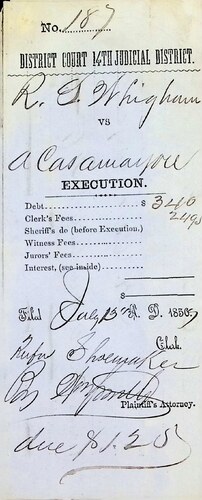 No. 187
DISTRICT COURT 14TH JUDICIAL DISTRICT.
R. S. Whigham
VS
A Casamayou
EXECUTION.
Debt $ 340
Clerk's Fees 2495
Sheriff's do (before Execution.)
Witness Fees
Jurors' Fees
Interest, (see inside)
$
Filed July 13th A. D. 1850
Rufus Shoemaker Clerk.
By
Plaintiff's Attorney.
due $1.25